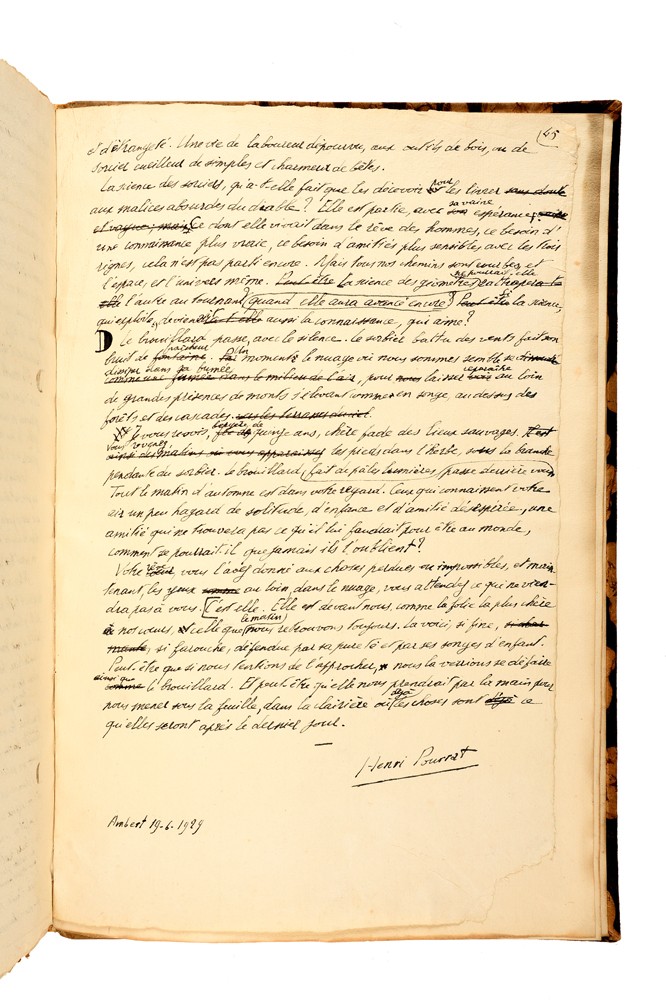 45
et d'étrangeté. Une vie de laboureur dépourvu, aux outils de bois, ou de
sorcier cueilleur de simples et charmeur de bêtes.
La science des sorciers, qu'a-t-elle fait que les décevoir pour les livrer sans doute
aux malices absurdes du diable? Elle est partie, avec sa vaine espérance,
et vague; mais Ce dont elle vivait dans le rêve des hommes, ce besoin d'
une connaissance plus vraie, ce besoin d'amitiés plus sensibles avec les trois
règnes, cela n'est pas parti encore. Mais tous nos chemins sont courbes et
l'espace, et l'univers même. Peut-être la science des géomètres ne pourrait-elle rattraper
l'autre au tournant? quand elle aura avancé encore? Peut-être la science,
qui exploite, deviendrait-elle aussi la connaissance, qui aime?
D Le brouillard a passé, avec le silence. Le sorbier battu des vents fait son
bruit de fontaine. Par moments le nuage où nous sommes semble se
dissiper dans sa fumée,
comme une fumée dans le milieu de l'air, pour nous laisser reparaître au loin
de grandes présences de monts s'élevant comme en songe, au-dessus des
forêts et des cascades.
Je vous revois, bergère de quinze ans, chère fade des lieux sauvages.
Vous revenez,
ainsi des matins où vous apparaissez les pieds dans l'herbe, sous la branche
pendante du sorbier. Le brouillard, fait de pâles lumières, passe derrière vous
Tout le matin d'automne est dans votre regard. Ceux qui connaissent votre
air un peu hagard de solitude, d'enfance et d'amitié désespérée, une
amitié qui ne trouvera pas ce qu'il lui faudrait pour être au monde,
comment se pourrait-il que jamais ils l'oublient?
Votre rêve, vous l'avez donné aux choses perdues ou impossibles, et main-
tenant, les yeux au loin, dans le nuage, vous attendez ce qui ne vien-
dra pas à vous. C'est elle. Elle est devant nous, comme la folie la plus chère
à nos cœurs, celle que le matin nous retrouvons toujours. La voici, si fine,
si farouche, défendue par sa pureté et par ses songes d'enfant.
Peut-être que si nous tentions de l'approcher, nous la verrions se défaire
ainsi que comme le brouillard. Et peut-être qu'elle nous prendrait par la main pour
nous mener sous la feuille, dans la clairière où les choses sont déjà ce
qu'elles seront après le dernier jour.
Henri Pourrat
Ambert 19-6-1929